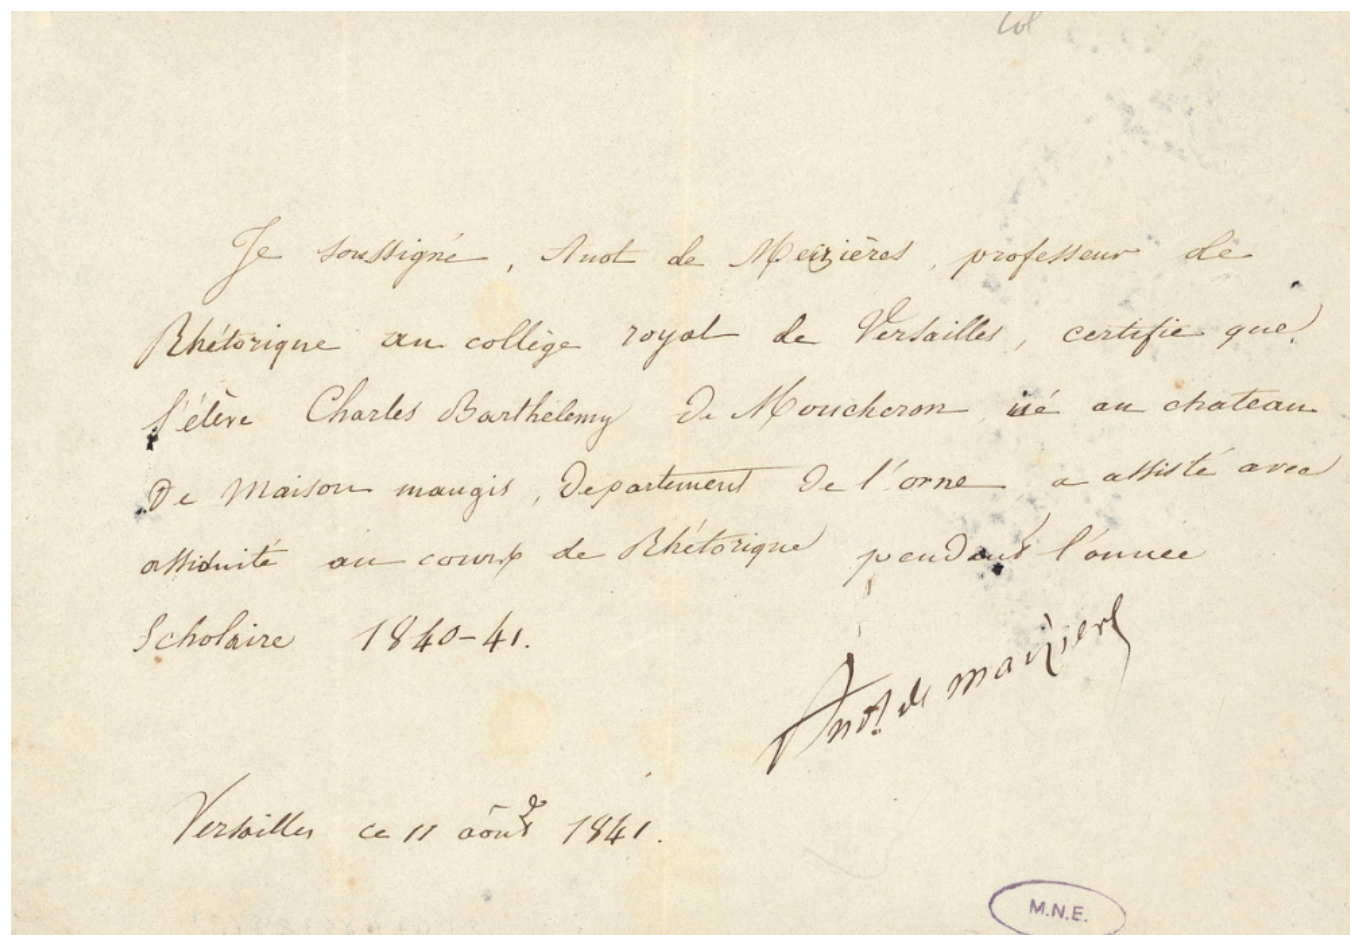 Col
Je soussigné, Anot de Meizières, professeur de
Rhétorique au collège royal de Versailles, certifie que
l'élève Charles Barthélemy De Moucheron né au chateau
De Maison maugis, Departement De l'orne a assisté avec
assiduité au cours de Rhétorique pendant l'année
Scholaire 1840-41.
Anot de Maizieres
Versailles ce 11 août 1841.
M.N.E.